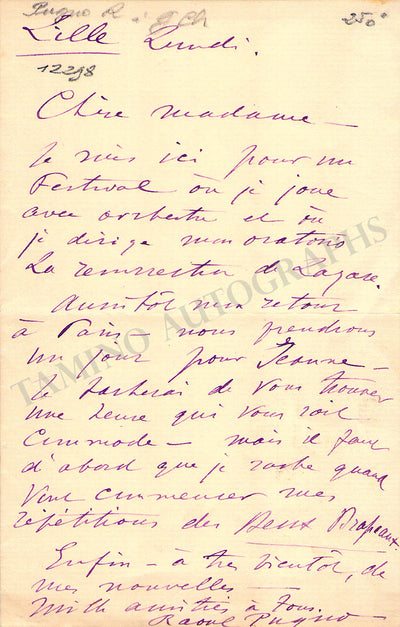 Pugno R.
250
Lille Lundi.
12298
Chère madame —
Je suis ici pour un
Festival où je joue
avec orchestre et où
je dirige mon oratorio
La résurrection de Lazare.
Aussitôt mon retour
à Paris — nous prendrons
un jour pour Jeanne —
Je tâcherai de vous trouver
une heure qui vous soit
commode — mais il faut
d'abord que je sache quand
vont commencer mes
répétitions des Deux Drapeaux.
Enfin — à très bientôt, de
mes nouvelles —
Mille amitiés à tous.
Raoul Pugno —
TAMINO AUTOGRAPHS